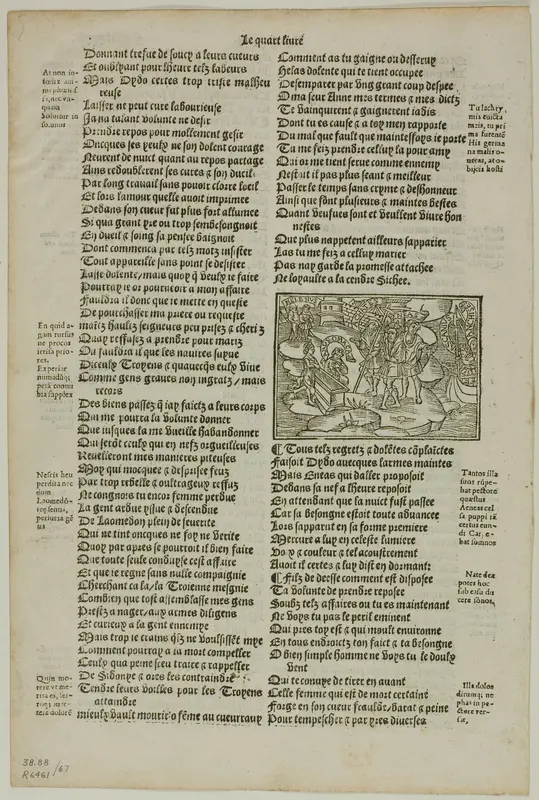 Le quart liure
Donnant trefue de soucy a leurs cueurs
Et oublyant pour lheure telz labeurs
Mais Dydo certes trop triste malheu
reuse
Laisser ne peut cure labourieuse
Ja na talant volunte ne desir
Prendre repos pour mollement gesir
Oncques ses yeulx ne son dolent courage
Neurent de nuict quant au repos partage
Ains redoublerent ses cures & son dueil
Par long trauail sans pouoir clorre loeil
Et lors lamour quelle auoit imprimee
Dedans son cueur fut plus fort allumee
Si qua grant yre ou trop sembesongnoit
En dueil & soing sa pensee baignoit
Dont commenca par telz motz insister
Tout apparelle sans point se desister
Lasse dolente/mais quoy q̃ veulx ie faire
Pourray ie or pourueoir a mon affaire
Fauldra il donc que ie mette en queste
De pourchasser ma priere ou requeste
maitz haulix seigneurs peu prisez & cheriz
Quay reffusez a prendre pour mariz
Ou fauldra il que les nauires suyue
Diceulx Troyens & quauecq̃s eulx viue
Comme gens graues non ingratz/mais
recors
Des biens passez q̃ iay faictz a leurs corps
Qui me pourra la volunte donner
Que iusques la me vueille habandonner
Qui serõt ceulx qui en nefz orgueilleuses
Reuelleront mes manieres piteuses
Moy qui mocquee & desprisee feuz
Par trop rebelle & oultrageux reffuz
Ne congnois tu encor femme perdue
La gent ardue yssue & descendue
De Laomedon plein de seuerite
Qui ne tint oncques ne foy ne verite
Quoy par apres se pourroit il bien faire
Que toute seule conduyse cest affaire
Et que ie regne sans nulle compaignie
Cherchant ca/la/la Troienne mesgnie
Combien que tost assemblasse mes gens
Prestz a nager/aux armes diligens
Et curieux a la gent ennemye
Mais trop ie crains q̃lz ne voulsissẽt mye
Comment pourray a la mort compeller
Ceulx qua peine sceu traire & rappeller
De Sidonye & ores les contraindre
Tendre leurs voilles pour les Troyens
attaindre
mieulx vault mourir o fẽme au cueur taux
At non in-
somnos
En quid a-
gam rursus
ne procos
res.
Experiar
Nescis heu
perdita nec
dum
periuria gẽ
tis
Quin mo-
Comment as tu gaigne ou desseruy
Helas dolente qui te tient occupee
Desemparer par vng grant coup despee
O ma seur Anne mes termes & mes dictz
Te vainquirent & gaignerent iadis
Dont tu es cause & a toy men rapporte
Du mal que fault que maintesfoys ie porte
Tu me feiz prendre celluy la pour amy
Qui or me tient serue comme ennemy
Nest il pas plus seant & meilleur
Passer le temps sans cryme & deshonneur
Ainsi que font plusieurs & maintes bestes
Quant veufues sont et veullent viure hon
nestes
Que plus nappetent ailleurs sapparier
Las tu me feiz a celluy marier
Pas nay garde la promesse attachee
Ne loyaulte a la cendre Sichee.
¶ Tous telz regretz & dolẽtes cõplaictes
Faisoit Dydo auecques larmes maintes
Mais Eneas qui daller proposoit
Dedans sa nef a lheure reposoit
En attendant que la nuict fust passee
Car sa besongne estoit toute aduancee
Lors sapparut en sa forme premiere
Mercure a luy en celeste lumiere
Voix & couleur & tel acoustrement
Auoit il certes & luy dist en dormant:
¶ Filz de deesse comment est disposee
Ta volunte de prendre reposee
Soubz telz affaires ou tu es maintenant
Ne voys tu pas le peril eminent
Qui pres toy est & qui moult enuironne
En tous endroictz ton faict & ta besongne
O bien simple homme ne voys tu le doulx
vent
Qui te conuye de tirer en auant
Celle femme qui est de mort certaine
Forge en son cueur fraulde/barat & peine
Pour tempescher & par yres diuerses
Tu lachry
mis euicta
meis, tu pri
ma furentẽ
His germa
na malis o-
neras, at o-
bijcis hosti
Tantos illa
suos rũpe-
bat pectore
questus
Aeneas cel
sa puppi iã
certus eun-
di Car, e-
bat somnos
Nate dea
potes hoc
sub casu du
cere sõnos,
Illa dolos
dirumq; ne
phas in pe-
ctore ver-
sat,
38.88
R6461/67